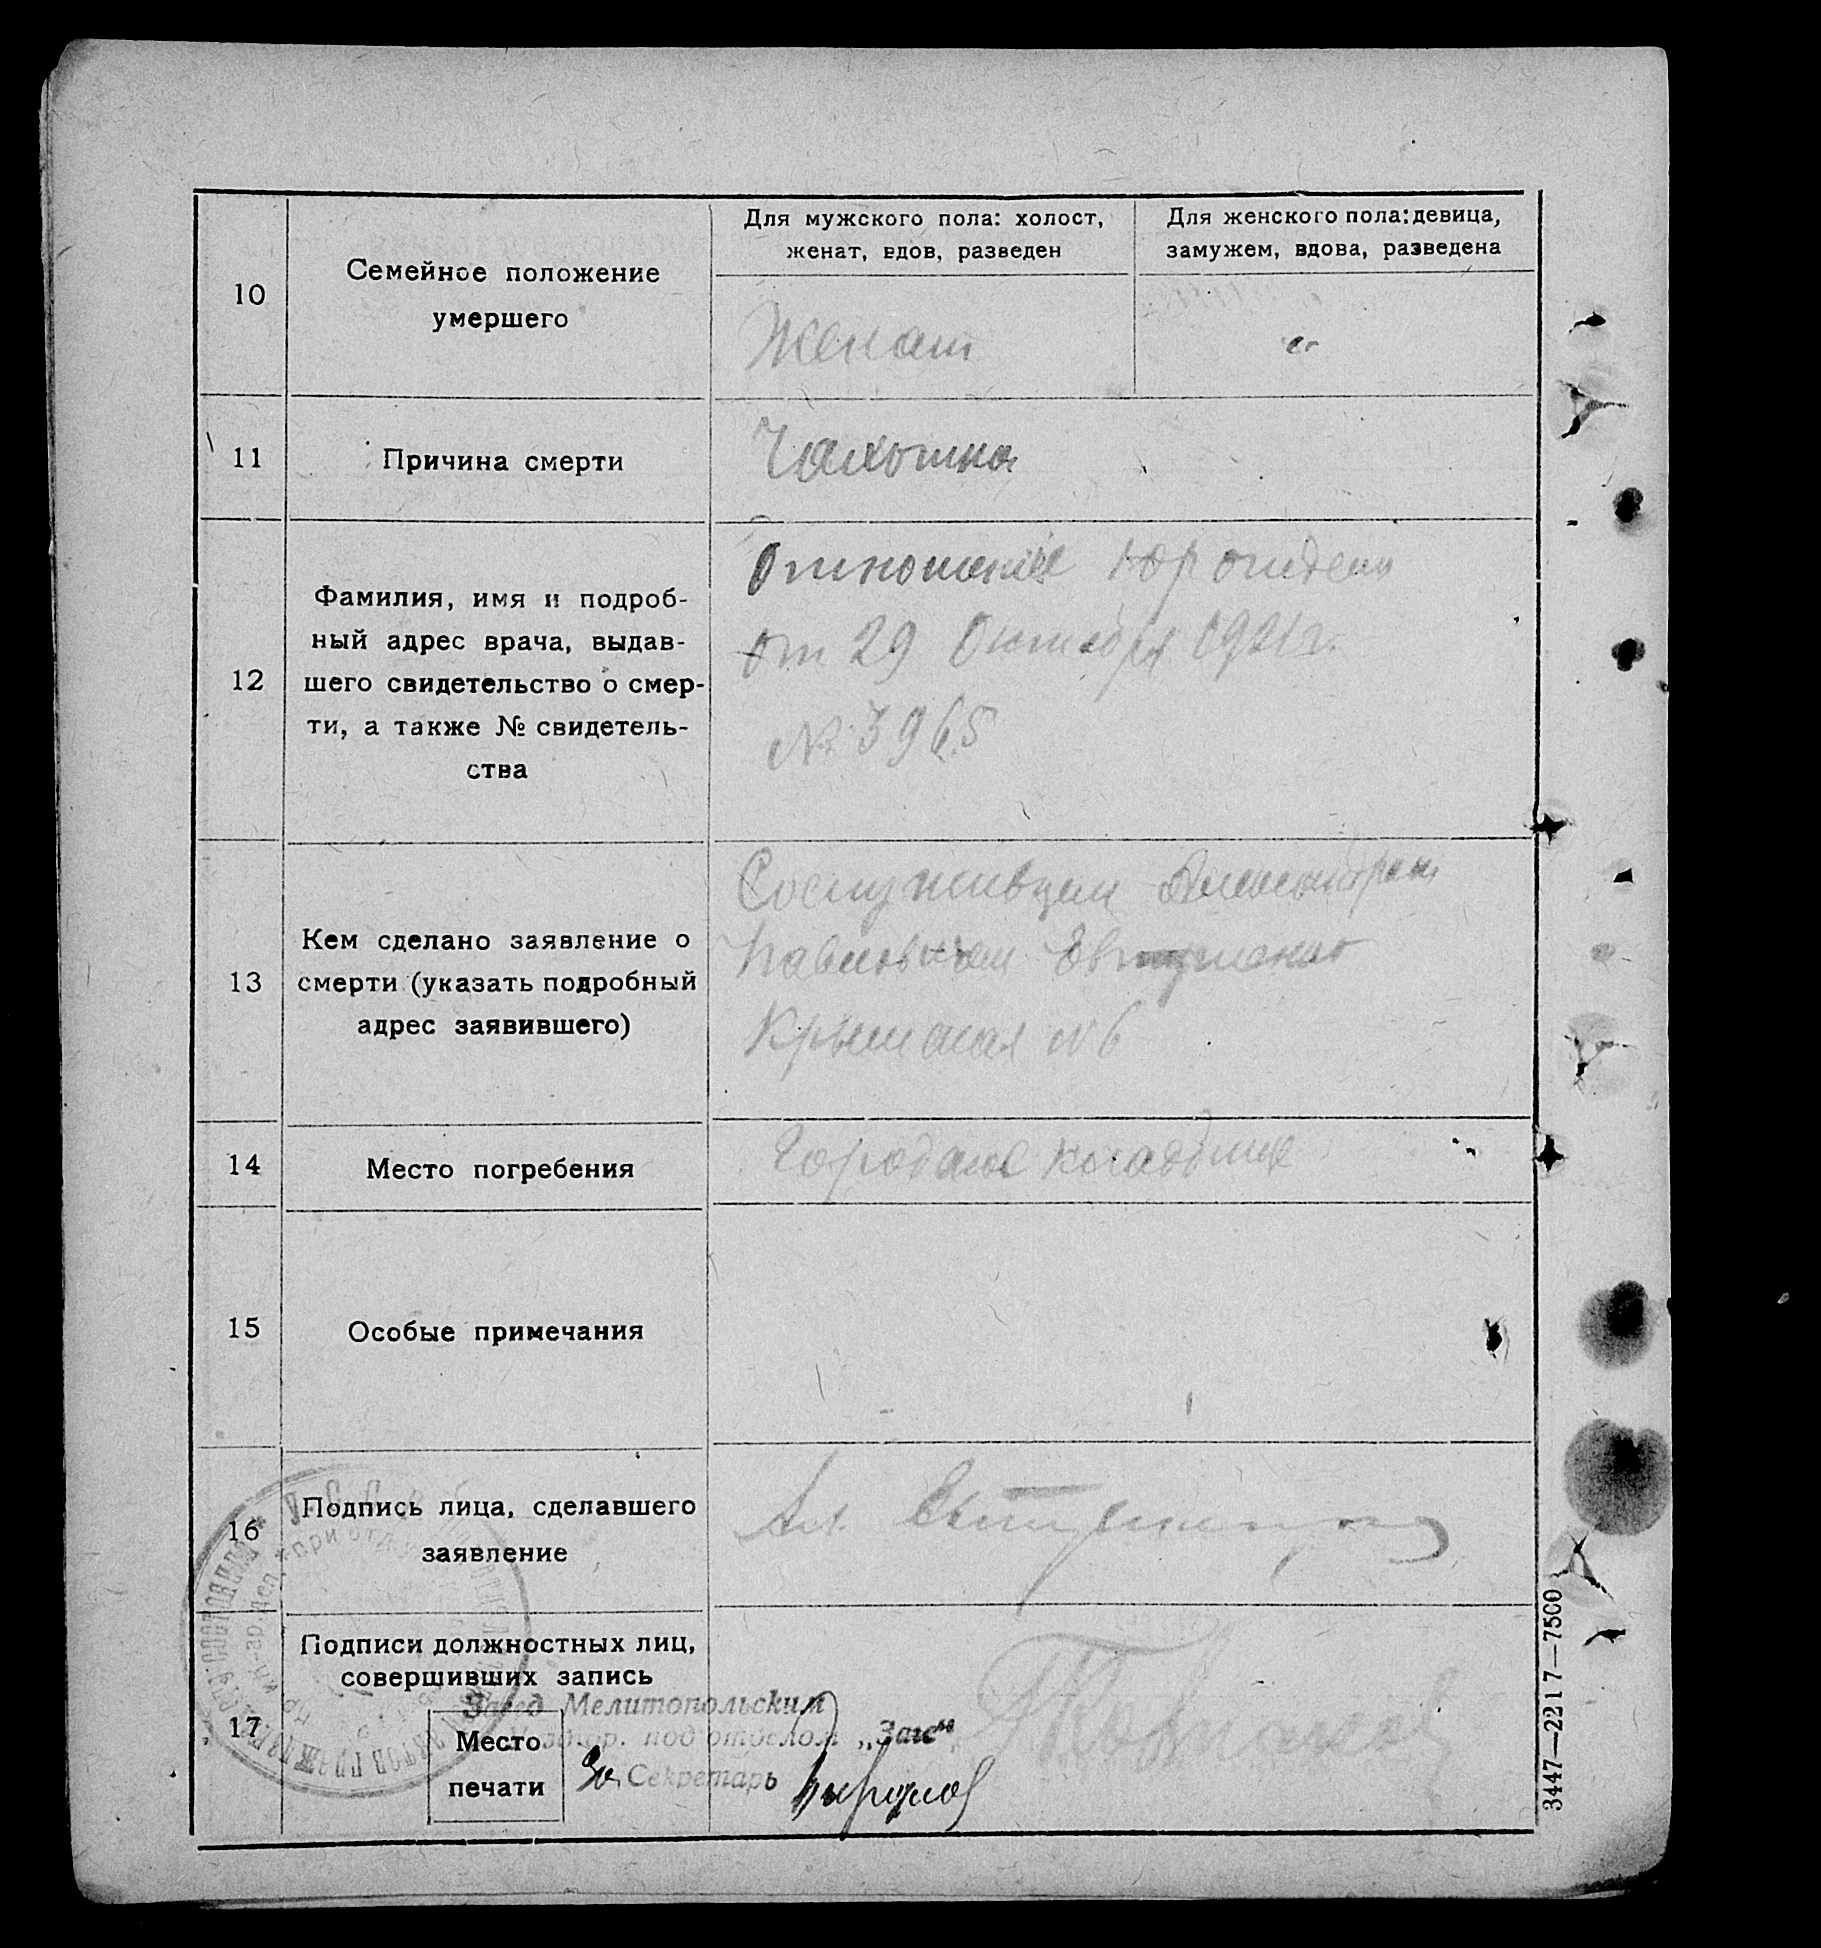 10
Семейное положение
умершего
Для мужского пола: холост,
женат, вдов, разведен
Для женского пола: девица,
замужем, вдова, разведена
Женат
"
11
Причина смерти
Чахотка
12
Фамилия, имя и подроб-
ный адрес врача, выдав-
шего свидетельство о смер-
ти, а также № свидетель-
ства
Отношение
от 29 Октября 1921 г.
№ 3965
13
Кем сделано заявление о
смерти (указать подробный
адрес заявившего)
Сослуживцем Александром
Павловичем Евтушенко
Крымская № 6
14
Место погребения
Городское кладбище
15
Особые примечания
16
Подпись лица, сделавшего
заявление
Ал. Евтушенко
17
Подписи должностных лиц,
совершивших запись
Завед Мелитопольским
под'отделом „Загс"
За Секретарь
Место
печати
3447—2217—7500